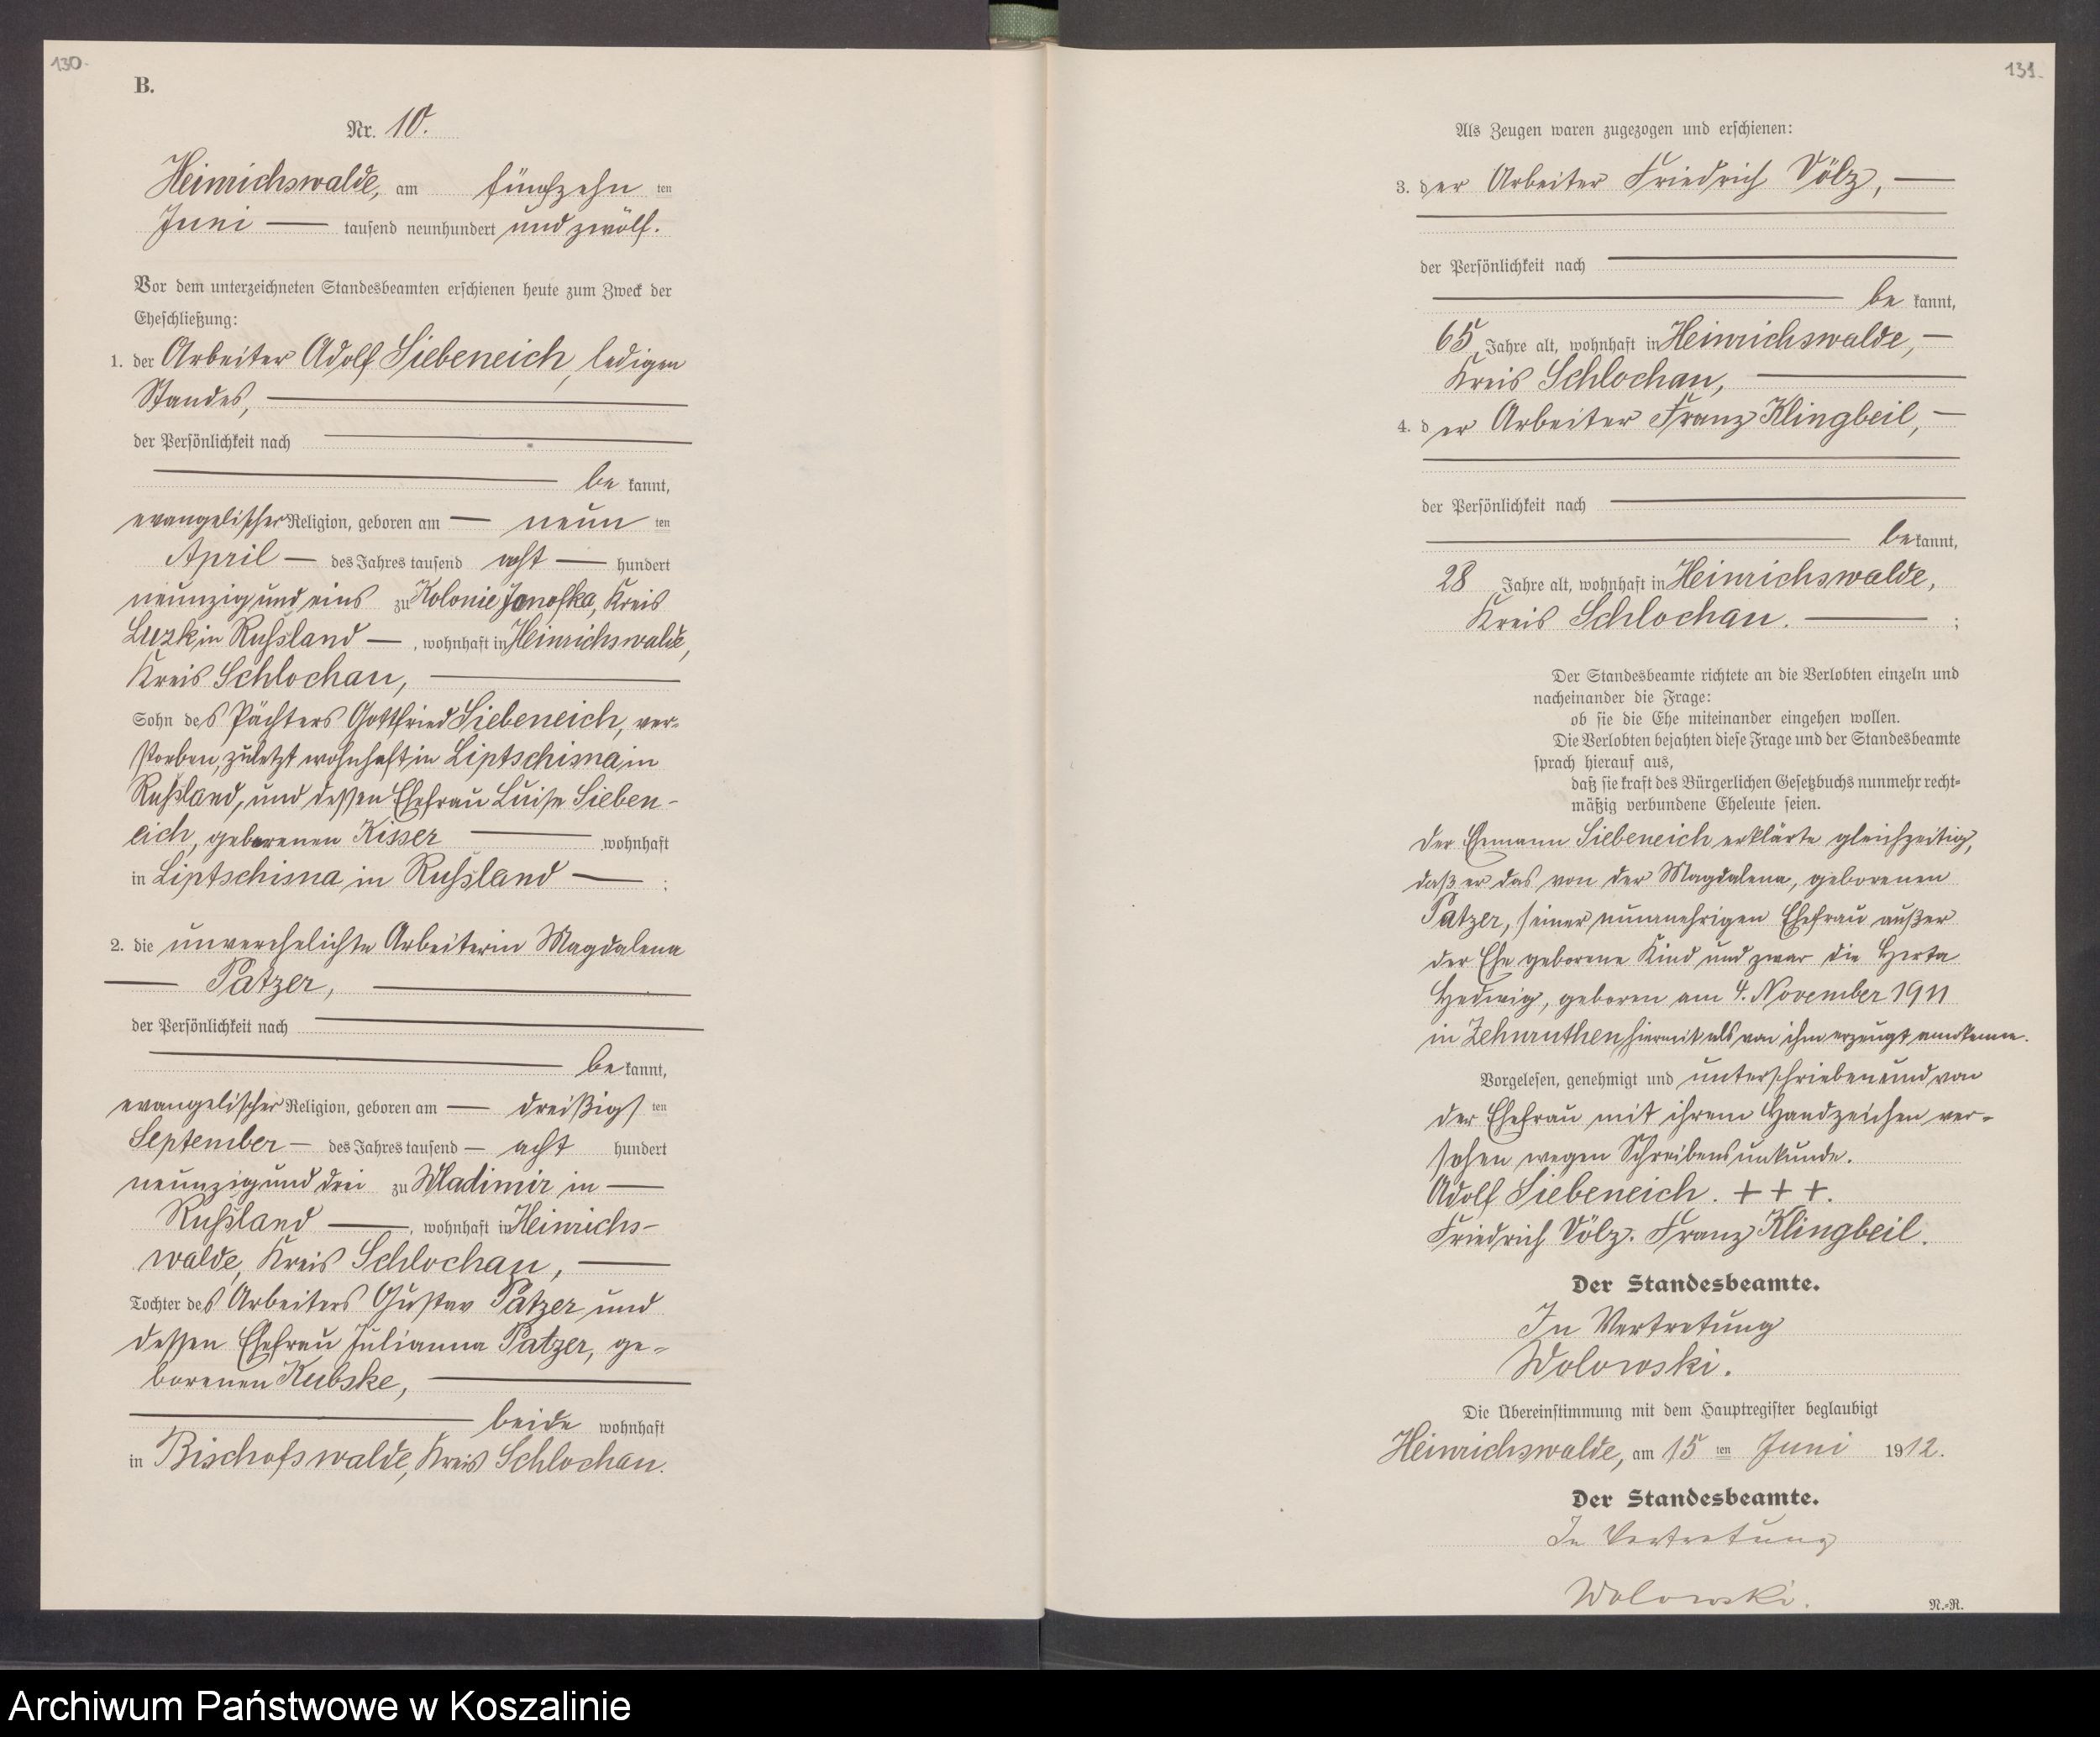 130.
B.
Nr. 10.
Heinrichswalde, am fünfzehn ten
Juni — tausend neunhundert und zwölf.
Vor dem unterzeichneten Standesbeamten erschienen heute zum Zweck der
Eheschließung:
1. der Arbeiter Adolf Siebeneich, ledigen
Standes, —
der Persönlichkeit nach —
— be kannt,
evangelischer Religion, geboren am — neun ten
April — des Jahres tausend acht — hundert
neunzig und eins zu Kolonie Janofka, Kreis
Luzk in Russland —, wohnhaft in Heinrichswalde,
Kreis Schlochau, —
Sohn des Pächters Gottfried Siebeneich, ver-
storben, zuletzt wohnhaft in Liptschisna in
Russland, und dessen Ehefrau Luise Sieben-
eich, geborenen Kisser — wohnhaft
in Liptschisna in Russland — ;
2. die unverehelichte Arbeiterin Magdalena
— Patzer, —
der Persönlichkeit nach —
— be kannt,
evangelischer Religion, geboren am — dreißigs ten
September — des Jahres tausend — acht hundert
neunzig und drei zu Wladimir in —
Russland —, wohnhaft in Heinrichs-
walde, Kreis Schlochau, —
Tochter des Arbeiters Gustav Patzer und
dessen Ehefrau Julianna Patzer, ge-
borenen Kubske, —
— beide wohnhaft
in Bischofswalde, Kreis Schlochau.
131.
Als Zeugen waren zugezogen und erschienen:
3. der Arbeiter Friedrich Völz, —
der Persönlichkeit nach —
— be kannt,
65 Jahre alt, wohnhaft in Heinrichswalde, —
Kreis Schlochau, —
4. der Arbeiter Franz Klingbeil, —
der Persönlichkeit nach —
— be kannt,
28 Jahre alt, wohnhaft in Heinrichswalde,
Kreis Schlochau. — ;
Der Standesbeamte richtete an die Verlobten einzeln und
nacheinander die Frage:
ob sie die Ehe miteinander eingehen wollen.
Die Verlobten bejahten diese Frage und der Standesbeamte
sprach hierauf aus,
daß sie kraft des Bürgerlichen Gesetzbuchs nunmehr recht-
mäßig verbundene Eheleute seien.
Der Ehemann Siebeneich erklärte gleichzeitig,
daß er das von der Magdalena, geborenen
Patzer, seiner nunmehrigen Ehefrau außer
der Ehe geborene Kind und zwar die Herta
Hedwig, geboren am 4. November 1911
in Zehnruthen hiermit als von ihm erzeugt anerkenne.
Vorgelesen, genehmigt und unterschrieben und von
der Ehefrau mit ihrem Handzeichen ver-
sehen wegen Schreibensunkunde.
Adolf Siebeneich. + + +.
Friedrich Völz. Franz Klingbeil.
Der Standesbeamte.
In Vertretung
Wolowski.
Die Übereinstimmung mit dem Hauptregister beglaubigt
Heinrichswalde, am 15 ten Juni 1912.
Der Standesbeamte.
In Vertretung
Wolowski.
N.-R.
Archiwum Państwowe w Koszalinie